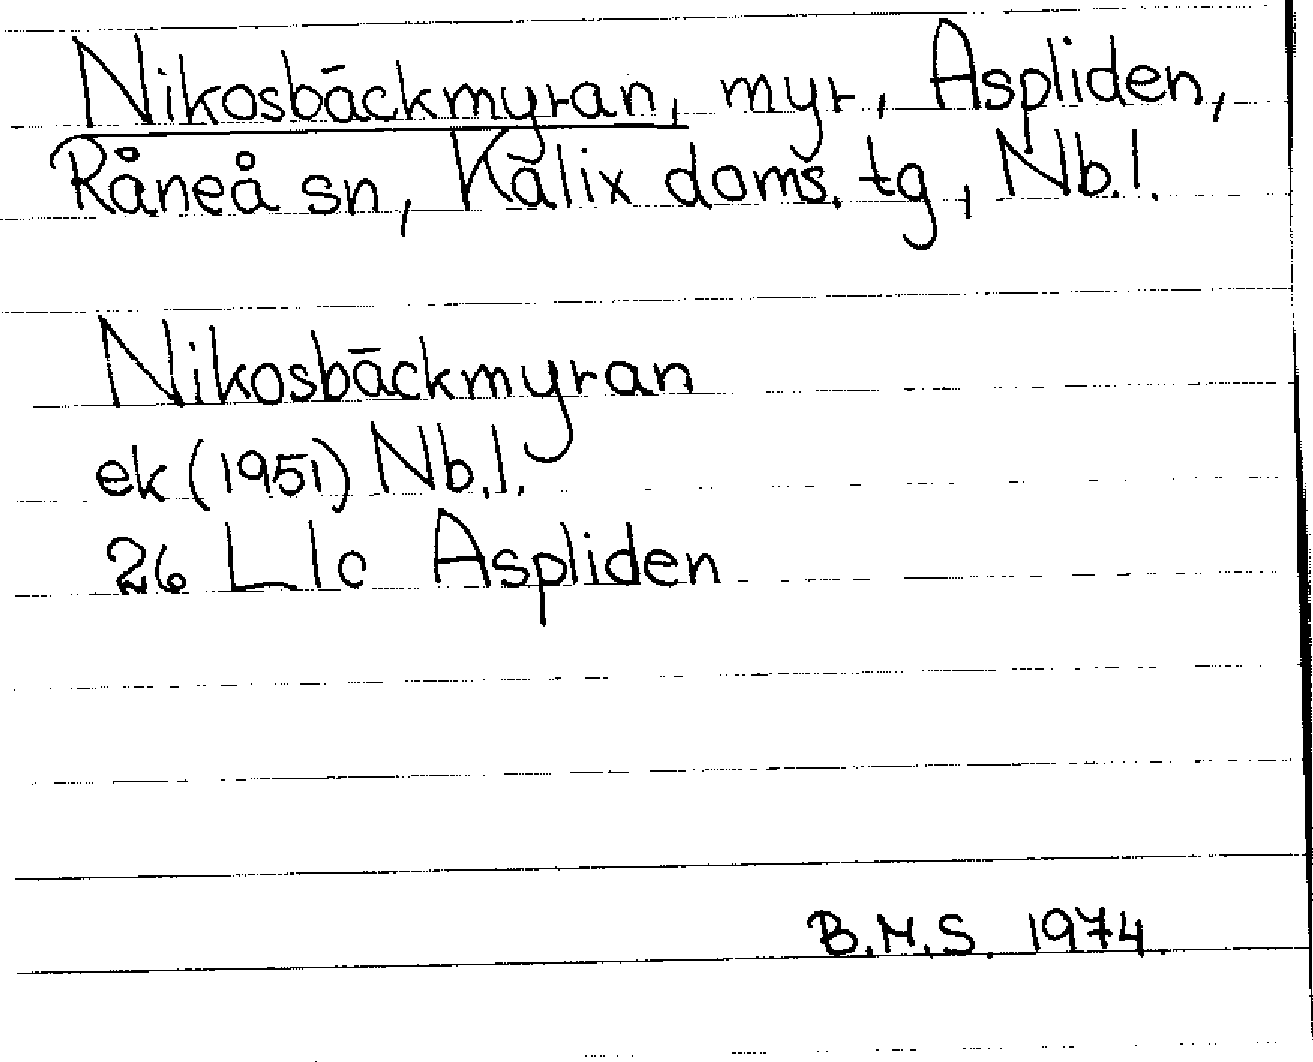 Nikosbäckmyran, myr, Aspliden,
Råneå sn, Kalix doms. tg, Nb.l.
Nikosbäckmyran
ek (1951) Nb.l.
26 L l c Aspliden
B.M.S. 1974.